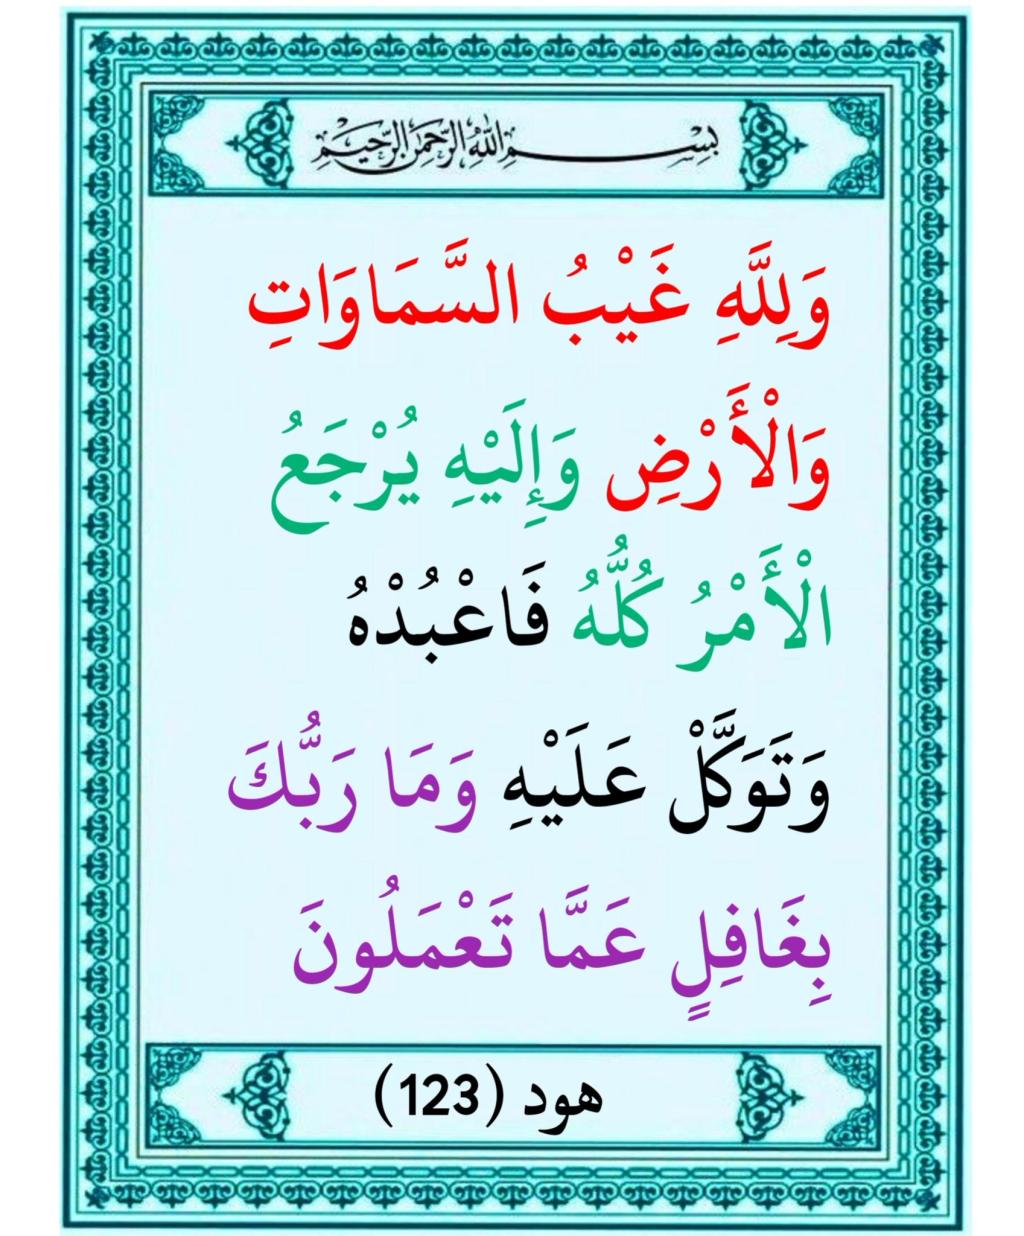 بِسْمِ اللَّهِ الرَّحْمَنِ الرَّحِيمِ
وَلِلَّهِ غَيْبُ السَّمَاوَاتِ
وَالْأَرْضِ وَإِلَيْهِ يُرْجَعُ
الْأَمْرُ كُلُّهُ فَاعْبُدْهُ
وَتَوَكَّلْ عَلَيْهِ وَمَا رَبُّكَ
بِغَافِلٍ عَمَّا تَعْمَلُونَ
هود (123)